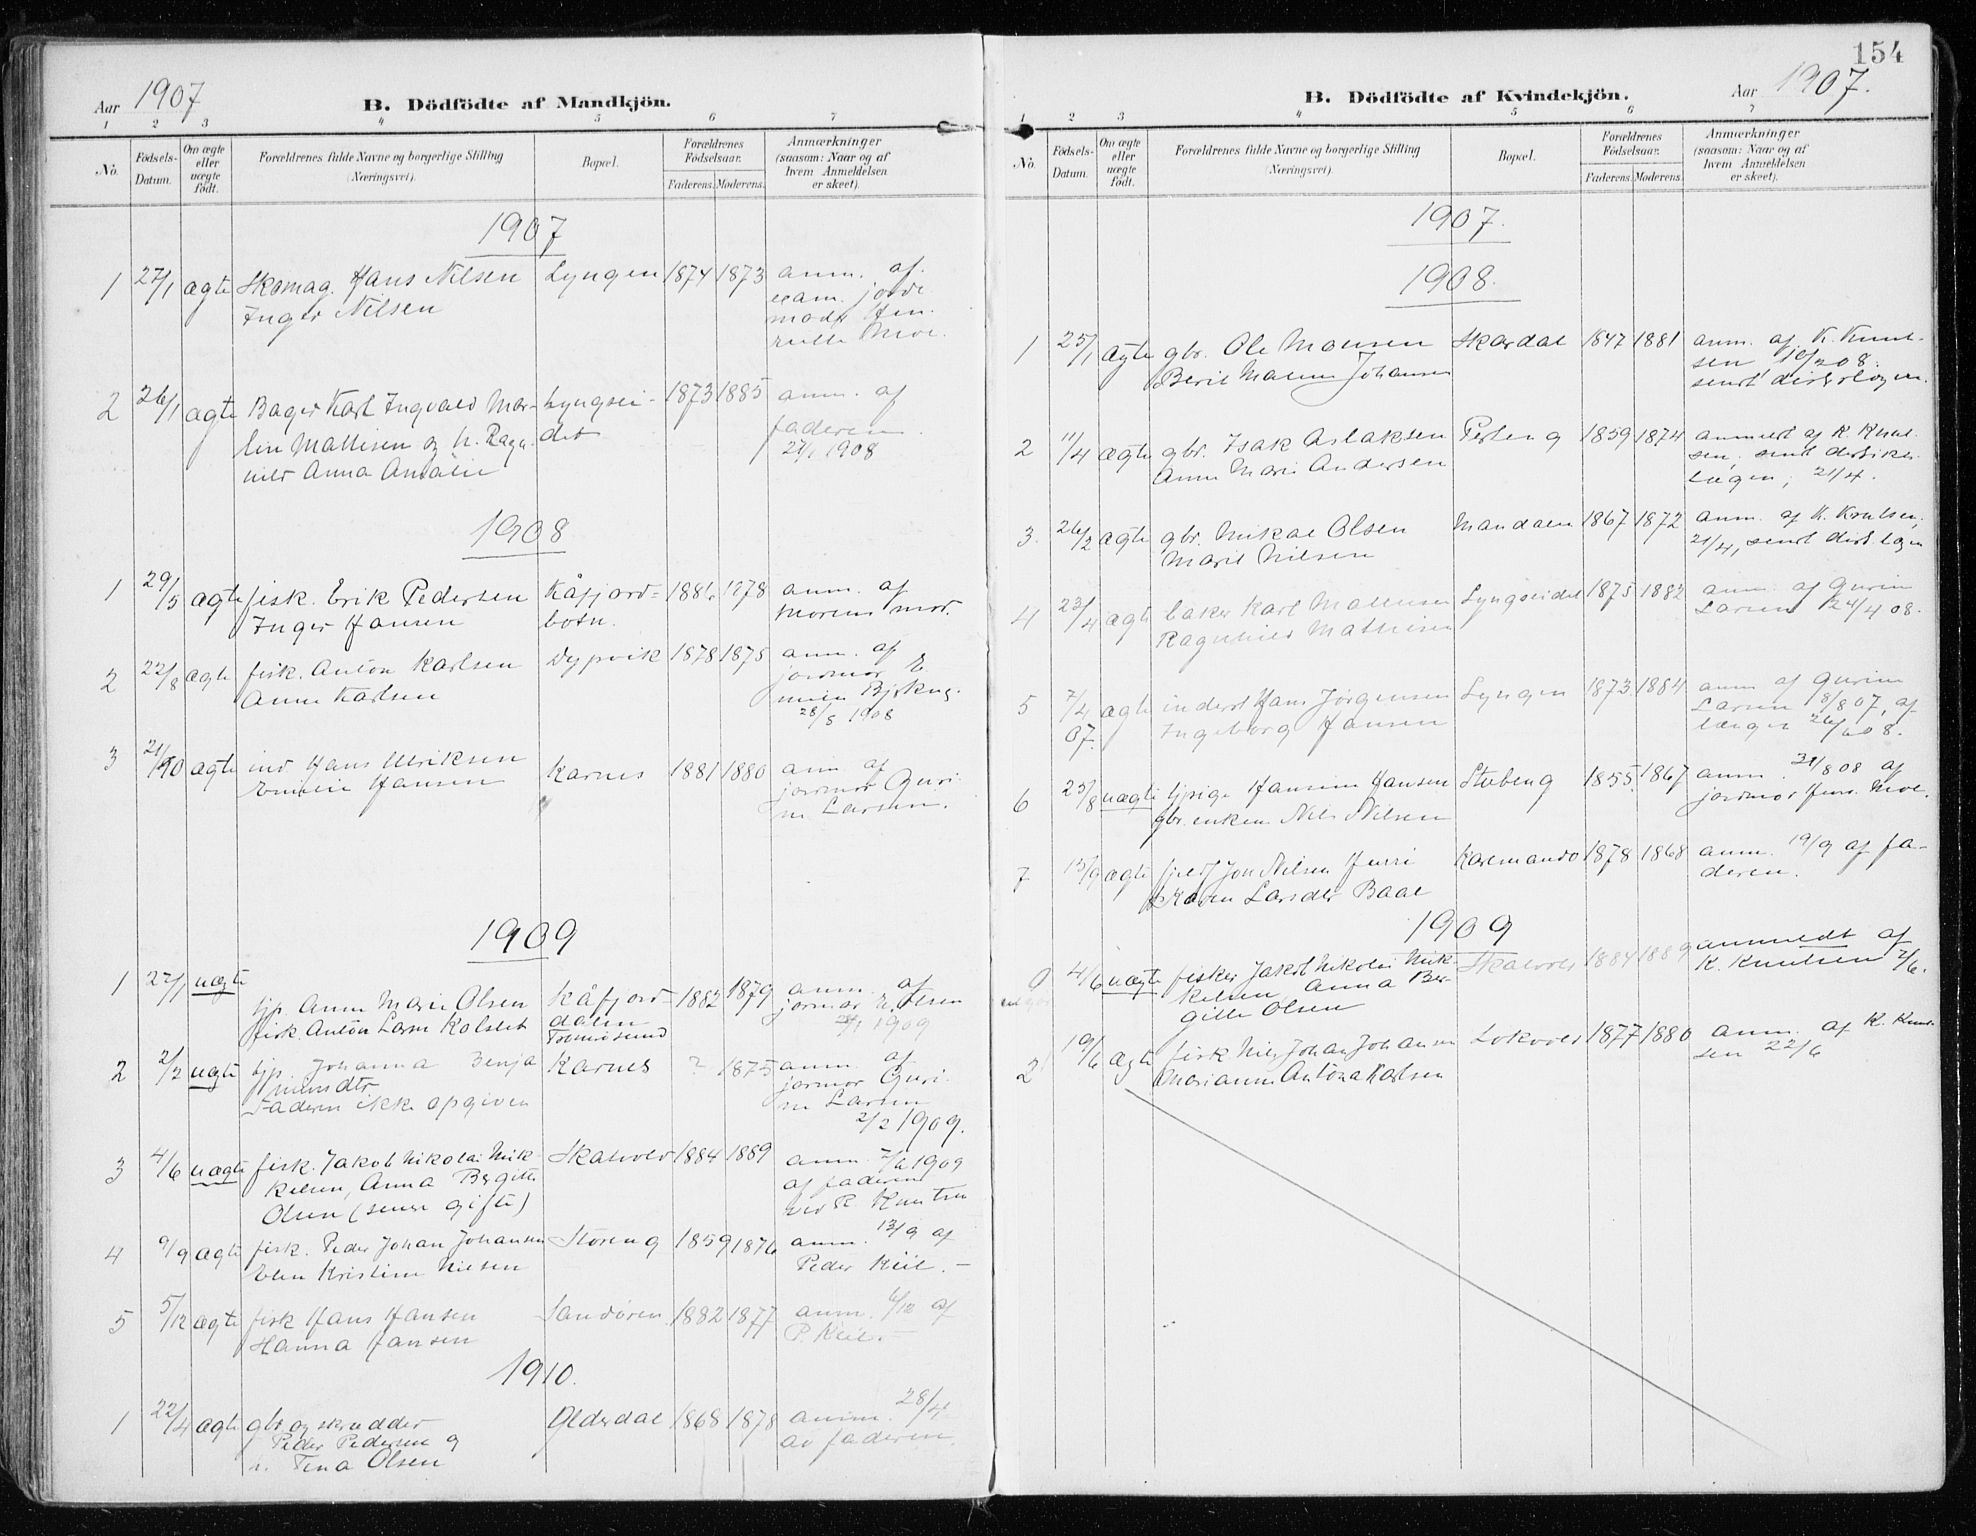 Aar 1907
B. Dödfödte af Mandkjön.
1 2 3 4 5 6 7
No.
Födsels-Datum.
Om ægte eller uægte födt.
Forældrenes fulde Navne og borgerlige Stilling
(Næringsvei).
Bopæl.
Forældrenes Födselsaar.
Faderens. Moderens.
Anmærkninger
(saasom: Naar og af
hvem Anmeldelsen
er skeet).
1907
1 27/1 ægte Skomag. Hans Nilsen Lyngen 1874 1873 anm. af
Inger Nilsen exam. jorde
moder Hen.
Moe.
2 26/1 ægte Bager Karl Ingvald Mar- Lyngsei- 1873 1885 anm. af
tin Mathisen og h. Ragn- det faderen
hild Anna Amalie 27/1 1908
1908
1 29/5 ægte fisk. Erik Pedersen Kåfjord- 1886 1878 anm. af
Inger Hansen botn. morens mor.
2 22/8 ægte fisk. Anton Karlsen Dypvik 1878 1875 anm. af
Anne Karlsen jordmor
28/8 1908
3 21/10 ægte ind Hans Ulriksen Karnes 1881 1880 anm af
Emilie Hansen jordmor Guri-
ne Larsen.
1909
1 27/1 uægte
tjp. Anne Marie Olsen Kåfjord- 1882 1879 anm. af
fisk. Anton Larsen Kolstet dalen jormor E. Olsen
Tromsøsund 1909
2 2/2 uægte tjp. Johanna Benja Karnes ? 1875 anm. af
minsdtr jormor Guri-
Faderen ikke opgiven ne Larsen
2/2 1909.
3 4/6 uægte fisk. Jakob Nikolai Mik- Skatvold 1884 1889 anm. 7/6 1909
kelsen, Anna Bergitte af faderen
Olsen (senere gifte) ved K. Knutsen
4 9/9 ægte fisk. Peder Johan Johansen Storeng 1859 1876 anm. 13/9 af
Elen Kristine Nilsen Peder Keil. —
5 5/12 ægte fisk Hans Hansen Sandøren 1882 1877 anm. 6/12 af
Hanna Jansen P. Keil. —
1910.
1 22/4 ægte gbr og skrædder Olderdal 1868 1878 anm. 28/4
Peder Pedersen og av faderen.
h. Tina Olsen
154
Aar 1907.
B. Dödfödte af Kvindekjön.
1 2 3 4 5 6 7
No.
Födsels-Datum.
Om ægte eller uægte födt.
Forældrenes fulde Navne og borgerlige Stilling
(Næringsvei).
Bopæl.
Forældrenes Födselsaar.
Faderens. Moderens.
Anmærkninger
(saasom: Naar og af
hvem Anmeldelsen
er skeet).
1907.
1908.
1 25/1 ægte gbr. Ole Monsen Skardal 1847 1881 anm. af K. Knut-
Berit Johansen sen 10/2 08.
sendt distr.lægen.
2 11/4 ægte gbr. Isak Aslaksen Perleng 1859 1874 anmeldt af K. Knut-
Anne Marie Andersen sen, sendt distrikts-
lægen, 21/4.
3. 26/2 ægte gbr. Mikal Olsen Mandalen 1867 1872 anm. af K. Knutsen,
Marit Nilsen 21/4, sendt dist.lægen
4 23/4 ægte baker Karl Mathisen Lyngseidet 1875 1882 anm. af Gurine
Ragnhild Mathisen Larsen 24/4 08.
5 7/4 07. ægte inderst Hans Jørgensen Lyngen 1873 1884 anm af Gurine
Ingeborg Hansen Larsen 8/8 07, af
lægen 26/6 08.
6 25/8 uægte tjpige Hansine Hansen Steteng 1855 1867 anm. 31/8 08 af
gbr. enkem Nils Nilsen jordmor Hen. Moe.
7 13/9 ægte fjeldf Jon Nilsen Juuri Karemando 1878 1868 anm. 19/9 af fa-
Karen Larsdtr Baal deren.
1909
4/6 uægte fisker Jakob Nikolai Mik- Skatvold 1884 1889 anmeldt af
kelsen, Anna Ber- K. Knutsen 7/6.
gitte Olsen
2 19/6 ægte fisk Nils Johan Johansen Lokvold 1877 1880 anm. af K. Knut-
Marianne Antona Karlsen sen 22/6